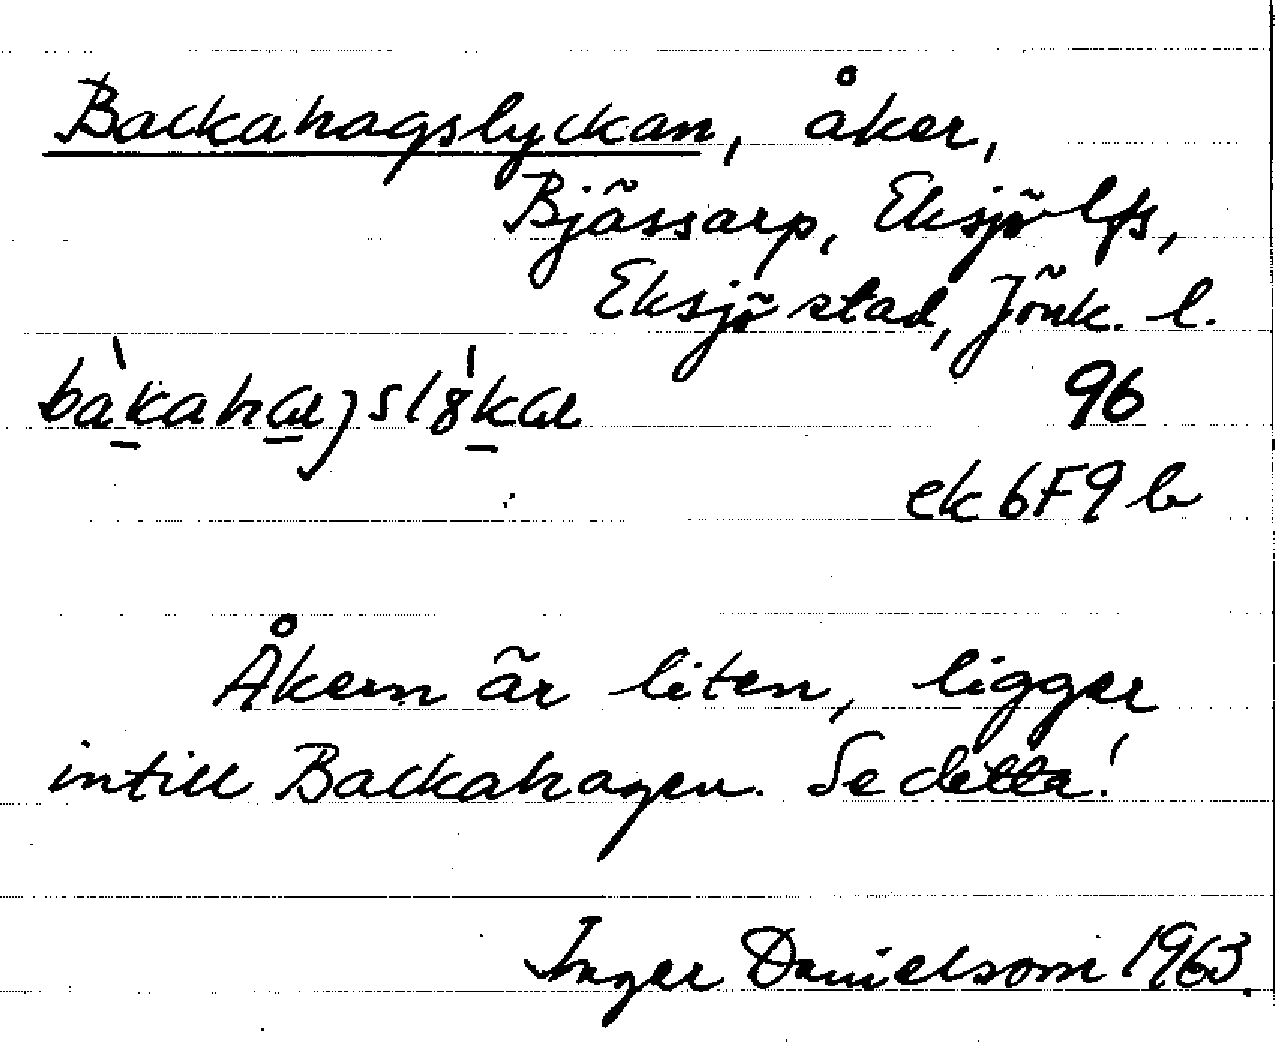 Backahagslyckan, åker,
Bjässarp, Eksjö lfs,
Eksjö stad, Jönk. l.
96
ek 6F9 b
Åkern är liten, ligger
intill Backahagen. Se detta!
Inger Danielsson 1963.